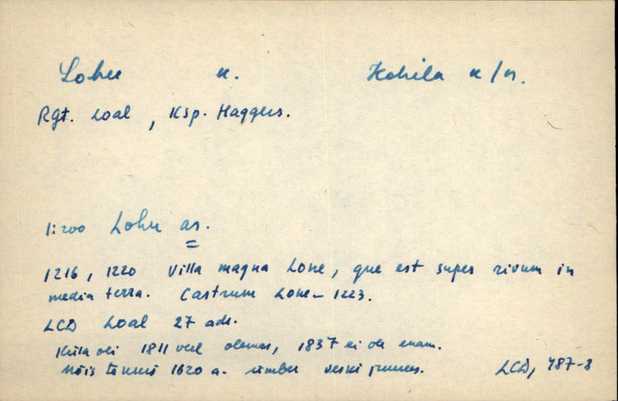 Lohu k. Kohila k/n.
Rgt. Loal, Ksp. Haggers.
1:200 Lohu as.
1216, 1220 Villa magna Lone, que est super rivum in
media terra. Castrum Lone - 1223.
LCD Loal 27 adr.
Küla oli 1811 veel olemas, 1837 ei ole enam.
Mõis tekkinud 1620 a. ümber veski juures. LCD, 487-8